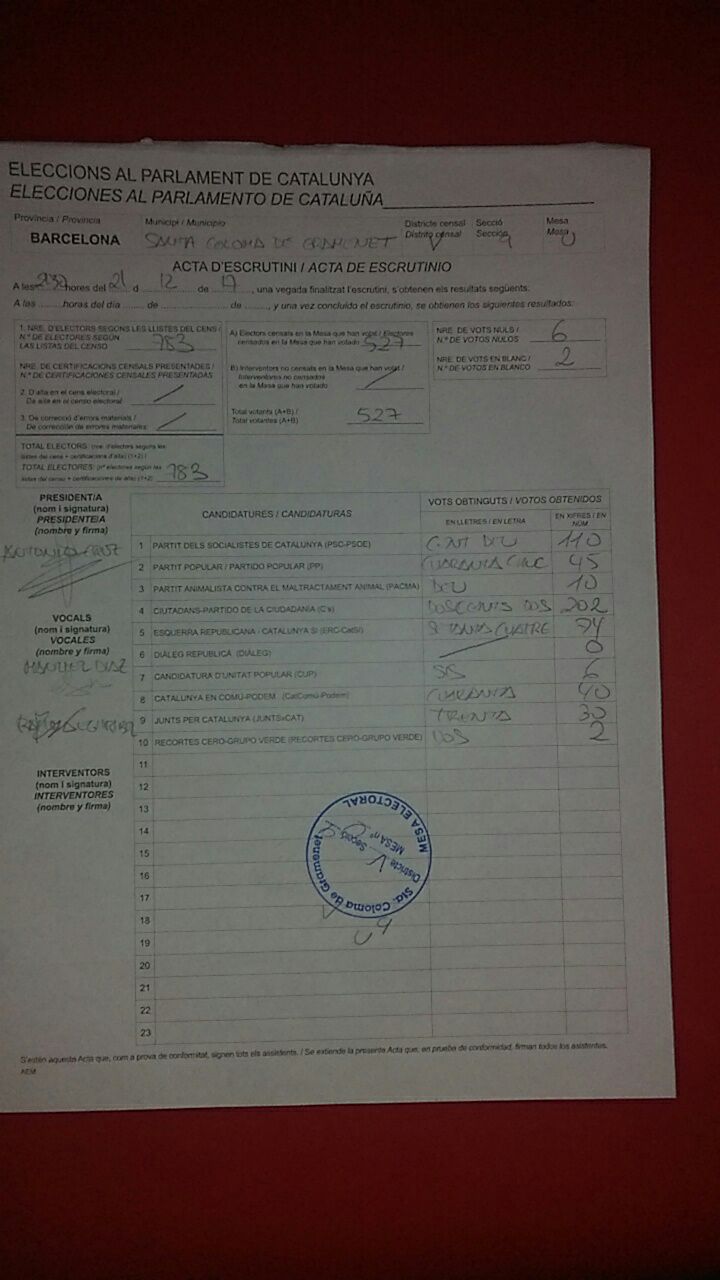 ELECCIONS AL PARLAMENT DE CATALUNYA
ELECCIONES AL PARLAMENTO DE CATALUÑA
Província / Provincia Municipi / Municipio Districte censal Secció Mesa
Distrito censal Sección Mesa
BARCELONA SANTA COLOMA DE GRAMENET V 9 U
ACTA D'ESCRUTINI / ACTA DE ESCRUTINIO
A les hores del 21 d 12 de 17, una vegada finalitzat l'escrutini, s'obtenen els resultats següents:
A las ......... horas del día ......... de ............... de ........., y una vez concluido el escrutinio, se obtienen los siguientes resultados:
1. NRE. D'ELECTORS SEGONS LES LLISTES DEL CENS /
N.º DE ELECTORES SEGÚN
LAS LISTAS DEL CENSO 783
NRE. DE CERTIFICACIONS CENSALS PRESENTADES /
N.º DE CERTIFICACIONES CENSALES PRESENTADAS
2. D'alta en el cens electoral /
De alta en el censo electoral:
3. De correcció d'errors materials /
De corrección de errores materiales:
TOTAL ELECTORS: (nre. d'electors segons les
llistes del cens + certificacions d'alta) (1+2) /
TOTAL ELECTORES: (nº electores según las
listas del censo + certificaciones de alta) (1+2) 783
A) Electors censats en la Mesa que han votat / Electores
censados en la Mesa que han votado 527
B) Interventors no censats en la Mesa que han votat /
Interventores no censados
en la Mesa que han votado
Total votants (A+B) /
Total votantes (A+B) 527
NRE. DE VOTS NULS /
N.º DE VOTOS NULOS 6
NRE. DE VOTS EN BLANC /
N.º DE VOTOS EN BLANCO 2
PRESIDENT/A
(nom i signatura)
PRESIDENTE/A
(nombre y firma)
VOCALS
(nom i signatura)
VOCALES
(nombre y firma)
INTERVENTORS
(nom i signatura)
INTERVENTORES
(nombre y firma)
CANDIDATURES / CANDIDATURAS VOTS OBTINGUTS / VOTOS OBTENIDOS
EN LLETRES / EN LETRA EN XIFRES / EN NÚM
1 PARTIT DELS SOCIALISTES DE CATALUNYA (PSC-PSOE) CENT DEU 110
2 PARTIT POPULAR / PARTIDO POPULAR (PP) CUARANTA CINC 45
3 PARTIT ANIMALISTA CONTRA EL MALTRACTAMENT ANIMAL (PACMA) DEU 10
4 CIUTADANS-PARTIDO DE LA CIUDADANÍA (C's) DOSCENTS DOS 202
5 ESQUERRA REPUBLICANA - CATALUNYA SÍ (ERC-CatSí) SETANTA CUATRE 74
6 DIÀLEG REPUBLICÀ (DIÀLEG) 0
7 CANDIDATURA D'UNITAT POPULAR (CUP) SIS 6
8 CATALUNYA EN COMÚ-PODEM (CatComú-Podem) CUARANTA 40
9 JUNTS PER CATALUNYA (JUNTSxCAT) TRENTA 30
10 RECORTES CERO-GRUPO VERDE (RECORTES CERO-GRUPO VERDE) DOS 2
11
12
13
14
15
16
17
18
19
20
21
22
23
MESA ELECTORAL
MESA nº
Districte V Secció 9
Sta. Coloma de Gramenet
V
U 9
S'estén aquesta Acta que, com a prova de conformitat, signen tots els assistents. / Se extiende la presente Acta que, en prueba de conformidad, firman todos los asistentes.